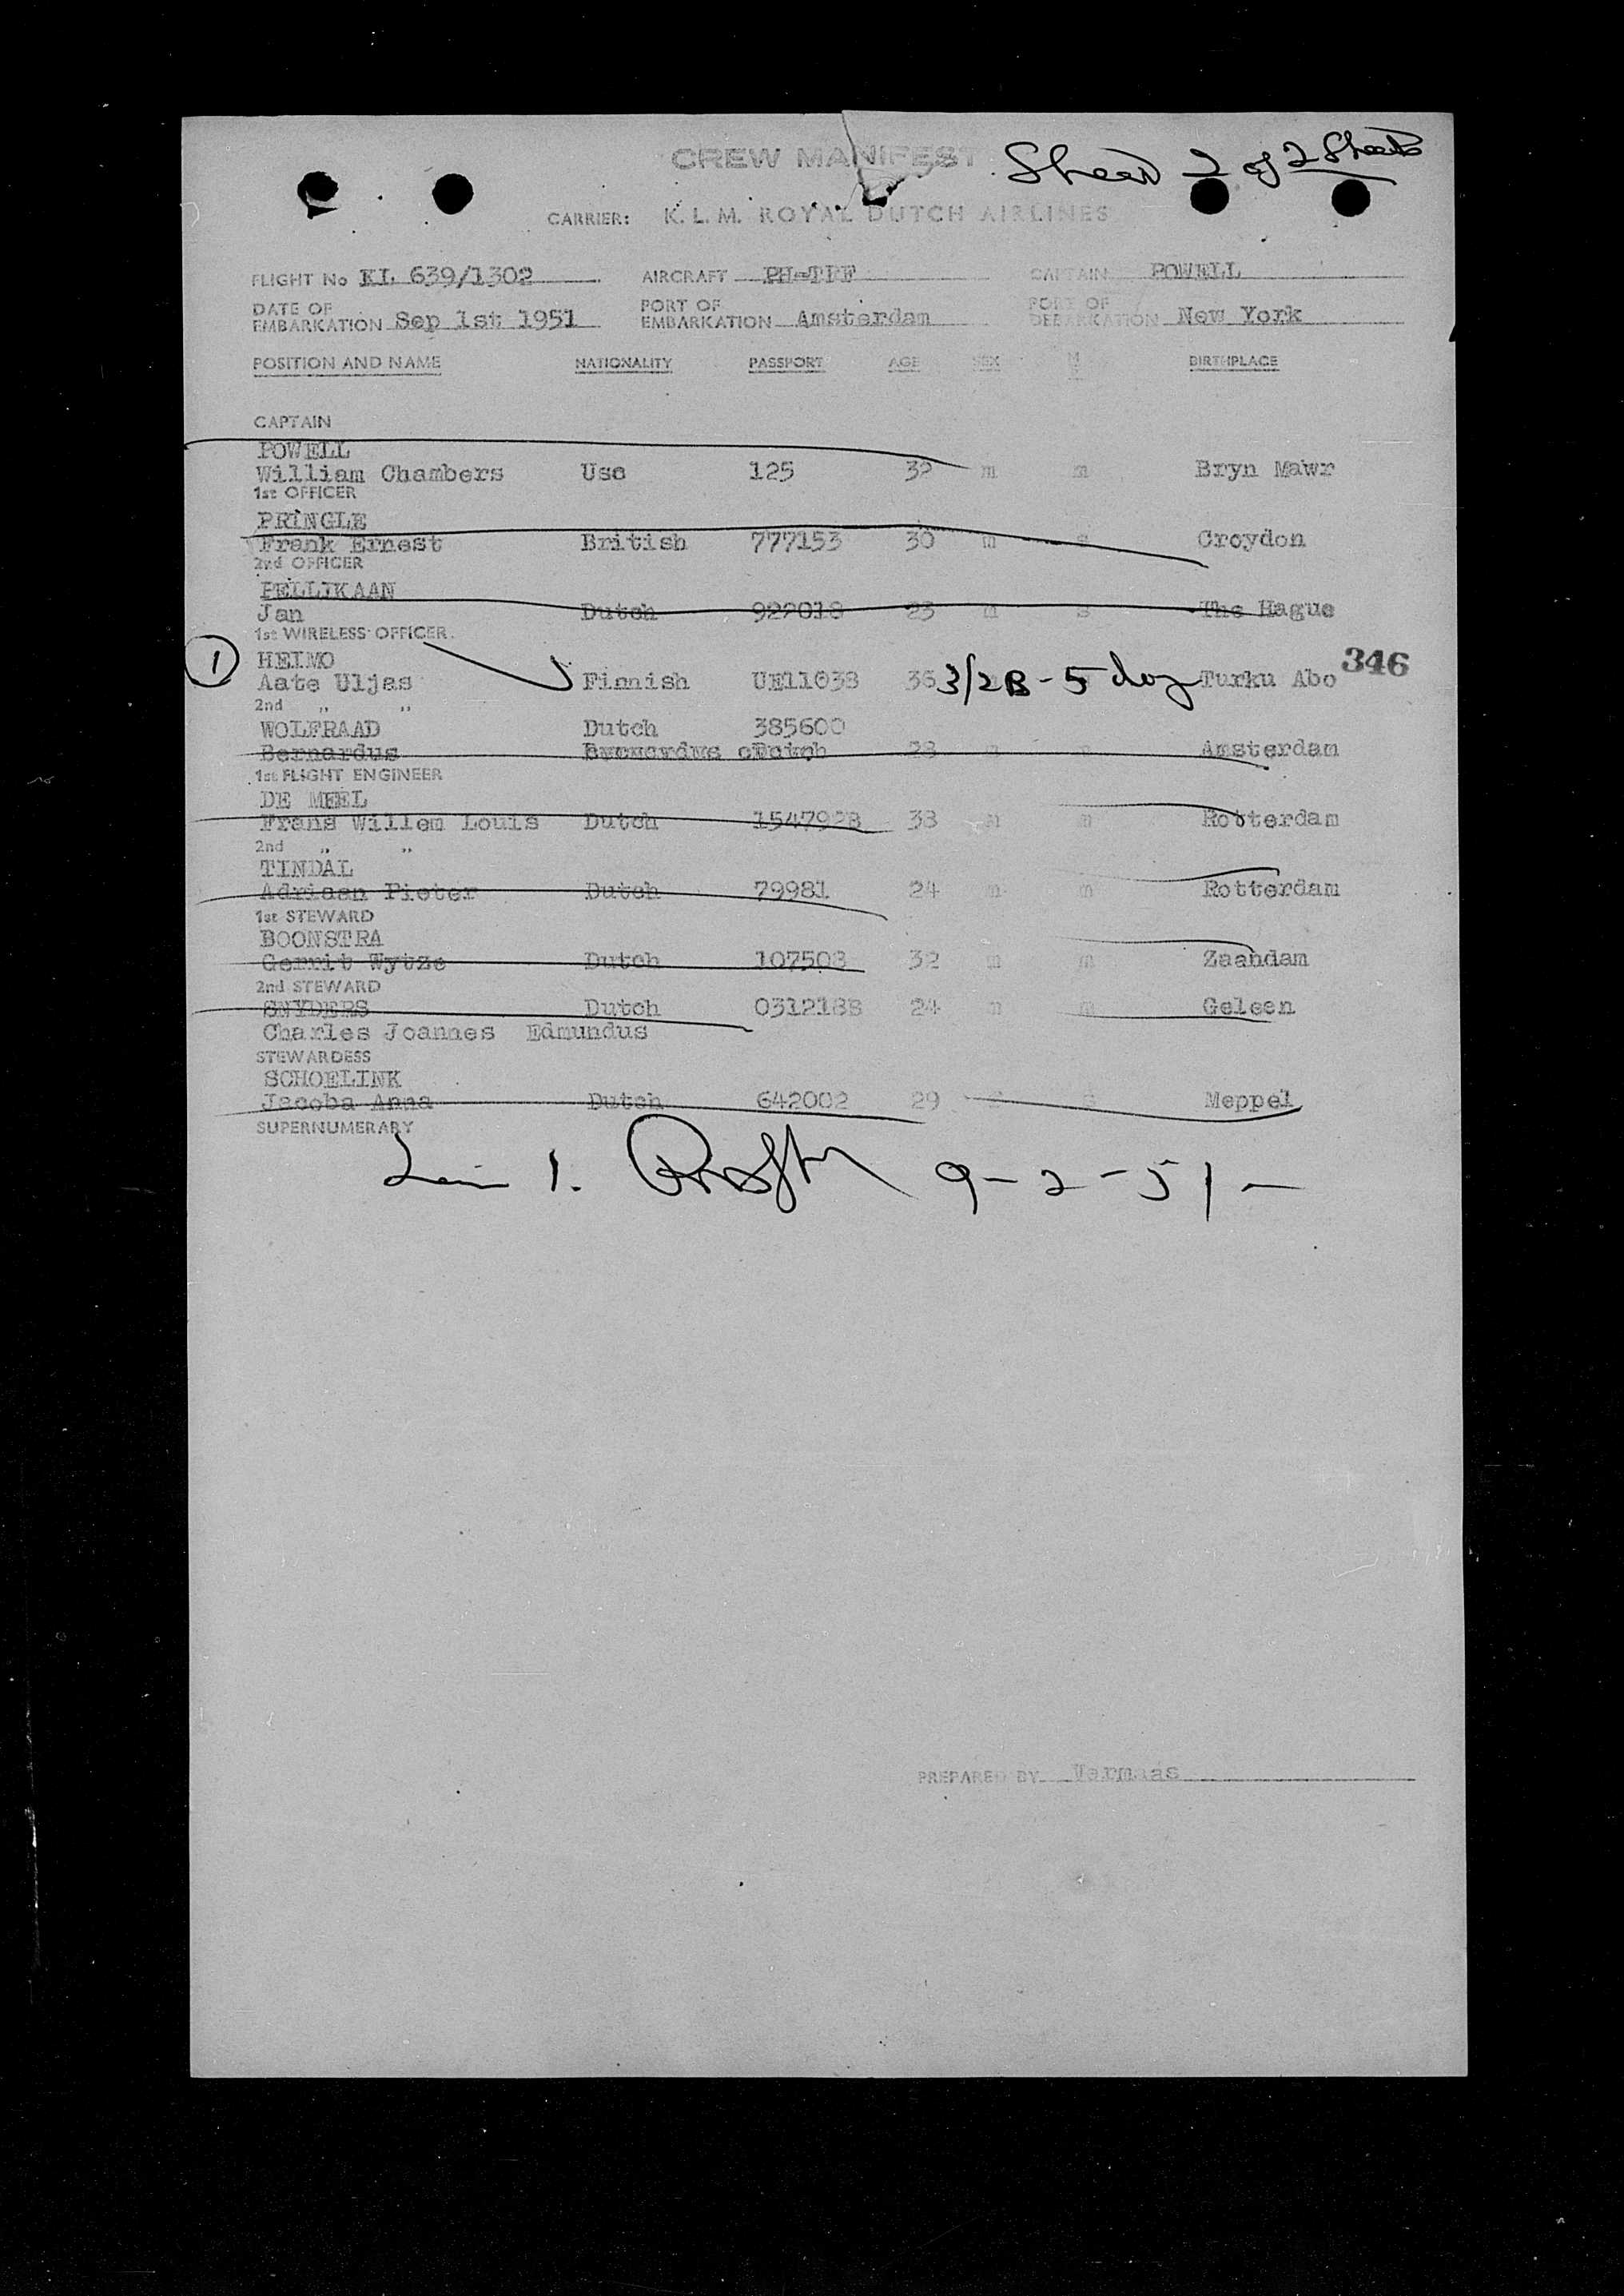 CREW MANIFEST Sheet 2 of 2 Sheets
CARRIER: K. L. M. ROYAL DUTCH AIRLINES
FLIGHT No KL 639/1302 AIRCRAFT PH-TFF CAPTAIN POWELL
DATE OF EMBARKATION Sep 1st 1951 PORT OF EMBARKATION Amsterdam PORT OF DEBARKATION New York
POSITION AND NAME NATIONALITY PASSPORT AGE SEX M BIRTHPLACE
CAPTAIN
POWELL
William Chambers Usc 125 32 m m Bryn Mawr
1st OFFICER
PRINGLE
Frank Ernest British 777153 30 m s Croydon
2nd OFFICER
PELLIKAAN
Jan Dutch 922018 23 m s The Hague
1st WIRELESS OFFICER.
1 HEIMO 346
Aate Uljas Finnish UE11038 36 3/2B - 5 day Turku Abo
2nd " "
WOLFRAAD Dutch 385600
Bernardus 28 m Amsterdam
1st FLIGHT ENGINEER
DE MEEL
Frans Willem Louis Dutch 1547928 38 m m Rotterdam
2nd " "
TINDAL
Adriaan Pieter Dutch 79981 24 m m Rotterdam
1st STEWARD
BOONSTRA
Gerrit Wytze Dutch 107508 32 m m Zaandam
2nd STEWARD
SNYDERS Dutch 0312188 24 m m Geleen
Charles Joannes Edmundus
STEWARDESS
SCHOELINK
Jacoba Anna Dutch 642002 29 Meppel
SUPERNUMERARY
1. 9-2-51-
PREPARED BY Vermaas